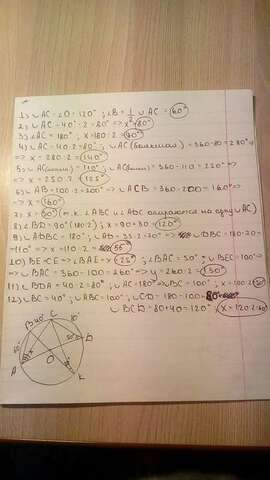 1) ∪AC=∠O=120°; ∠B=1/2 ∪AC=60°
2) ∪AC=40°·2=80° => x=80°
3) ∠AC=180°; x=180:2=90°
4) ∪AC=40·2=80°; ∪AC(большая)=360-80=280°=>
=> x=280:2=140°
=> x=250:2=125°
6) ∪AB=100·2=200° => ∪ACB=360-200=160°=>
=> x=160°
7) x=50° (т.к. ∠ABC и ∠ADC опираются на одну ∪AC)
8) ∠BD=90°(180:2); x=90+30=120°
9) ∪DBC=180°; ∪AD=35·2=70° => ∪DBC=180-70=
=110° => x=110:2=55°
10) BE=CE => ∠BAE=x=25°; ∠BAC=50°; ∪BEC=100°=>
=> ∪BAC=360-100=260° => y=260:2=130°
11) ∪BDA=40·2=80°; ∪AC=180° => ∪BC=100°; x=100:2=50°
12) ∪BC=40°; ∪ABC=100°; ∪CD=180-100=80°
∪BCD=80+40=120°; x=120:2=60°
B 40° C
D
O
A
K